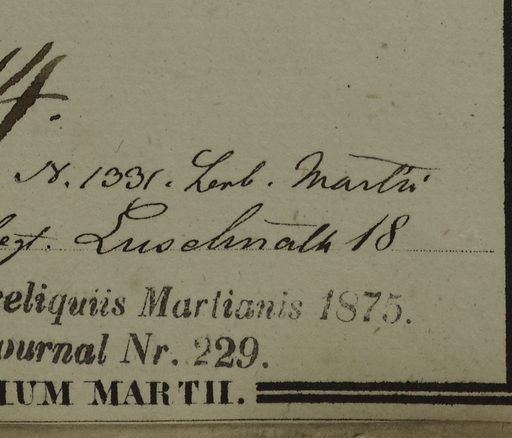 4.
N. 1331. Herb. Martii
legt. Luschnath 18
reliquiis Martianis 1875.
ournal Nr. 229.
IUM MARTII.